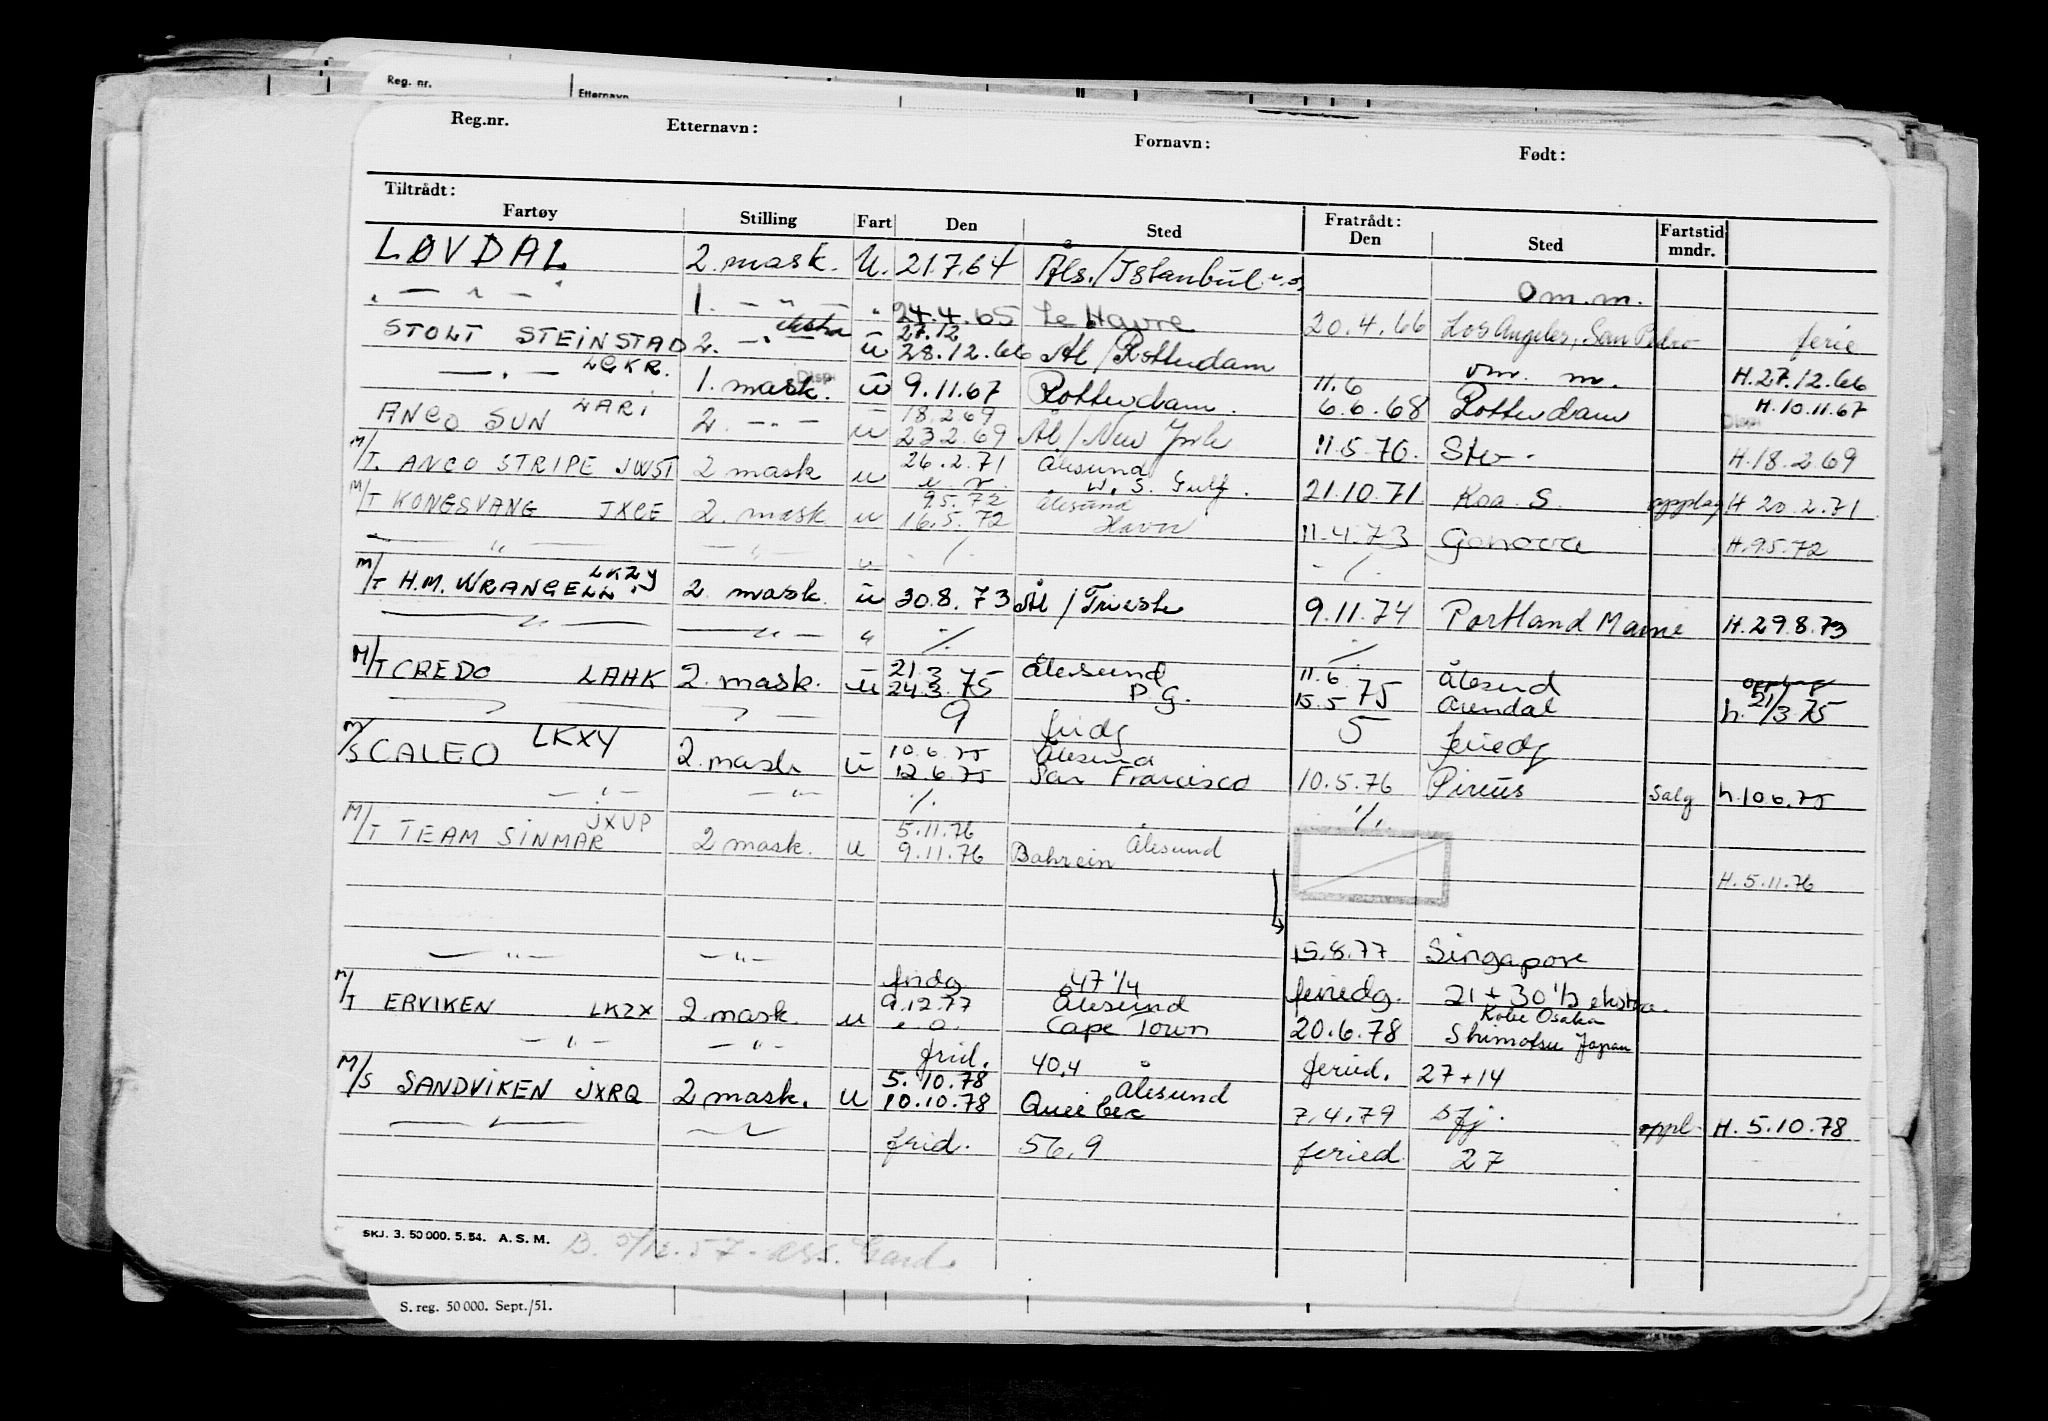 Reg. nr. Etternavn
Reg.nr. Etternavn: Fornavn: Født:
Tiltrådt: Fratrådt:
Fartøy Stilling Fart Den Sted Den Sted Fartstid mndr.
LØVDAL 2. mask. U. 21.7.64 Åls./Istanbul
" — " — " 1. — " — " 24.4.65 Le Havre Om.m.
20.4.66 Los Angeles, San Pedro ferie
STOLT STEINSTAD 2. — " — ekstra u 27.12 28.12.66 Ål/Rotterdam
LGKR. om. m. H.27.12.66
— " — 1. mask. Disp u 9.11.67 Rotterdam. 11.6 6.6.68 Rotterdam H.10.11.67
ANCO SUN LARI 2. — " — u 18.2.69 23.2.69 Ål/New York 11.5.70. Sto. Disp H.18.2.69
M/T. ANCO STRIPE JWST 2 mask u 26.2.71 Ålesund
U.S. Gulf. 21.10.71 Koa. S. opplag H 20.2.71
M/T KONGSVANG JXCE 2. mask u 9.5.72 16.5.72 Ålesund Havn
11.4.73 Genova H.9.5.72
— " — — " — u ./. ./.
M/T H.M. WRANGELL LKZY 2. mask. u 30.8.73 Ål/Trieste 9.11.74 Portland Maine H.29.8.73
— " — — " — " ./. ./.
M/T CREDO LAHK 2. mask. u 21.3 24.3.75 Ålesund P.G. 11.6 15.5.75 Ålesund Arendal h. 21/3 75
— " — — " — 9 fridg 5 feriedg
M/S CALEO LKXY 2. mask u 10.6.75 12.6.75 Ålesund San Francisco 10.5.76 Pireus Salg h.10.6.75
— " — — " — ./. ./.
M/T TEAM SINMAR JXUP 2 mask. u 5.11.76 9.11.76 Bahrein Ålesund
H. 5.11.76
— " — — " — 15.8.77 Singapore
fridg 47 1/4 feriedg. 21 + 30 1/2 ekstra.
M/T ERVIKEN LKZX 2. mask. u 9.12.77 Ålesund Cape Town 20.6.78 Kobe Osaka Shimotsu Japan
— " — — " — frid. 40,4 feried. 27+14
M/S SANDVIKEN JXRQ 2 mask. u 5.10.78 10.10.78 Ålesund Queibec 7.4.79 Sfj. oppl. H. 5.10.78
— " — — " — frid. 56,9 feried 27
SKJ. 3. 50 000. 5. 54. A. S. M.
S. reg. 50 000. Sept./51.